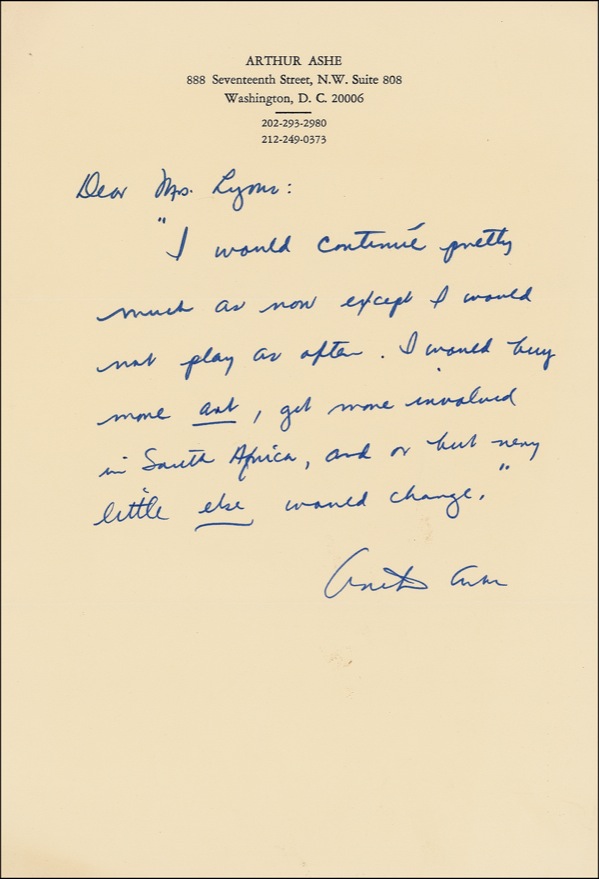 ARTHUR ASHE
888 Seventeenth Street, N.W. Suite 808
Washington, D. C. 20006
202-293-2980
212-249-0373
Dear Mrs. Lyons:
"I would continue pretty
much as now except I would
not play as often. I would buy
more art, get more involved
in South Africa, and or but very
little else would change."
Arthur Ashe